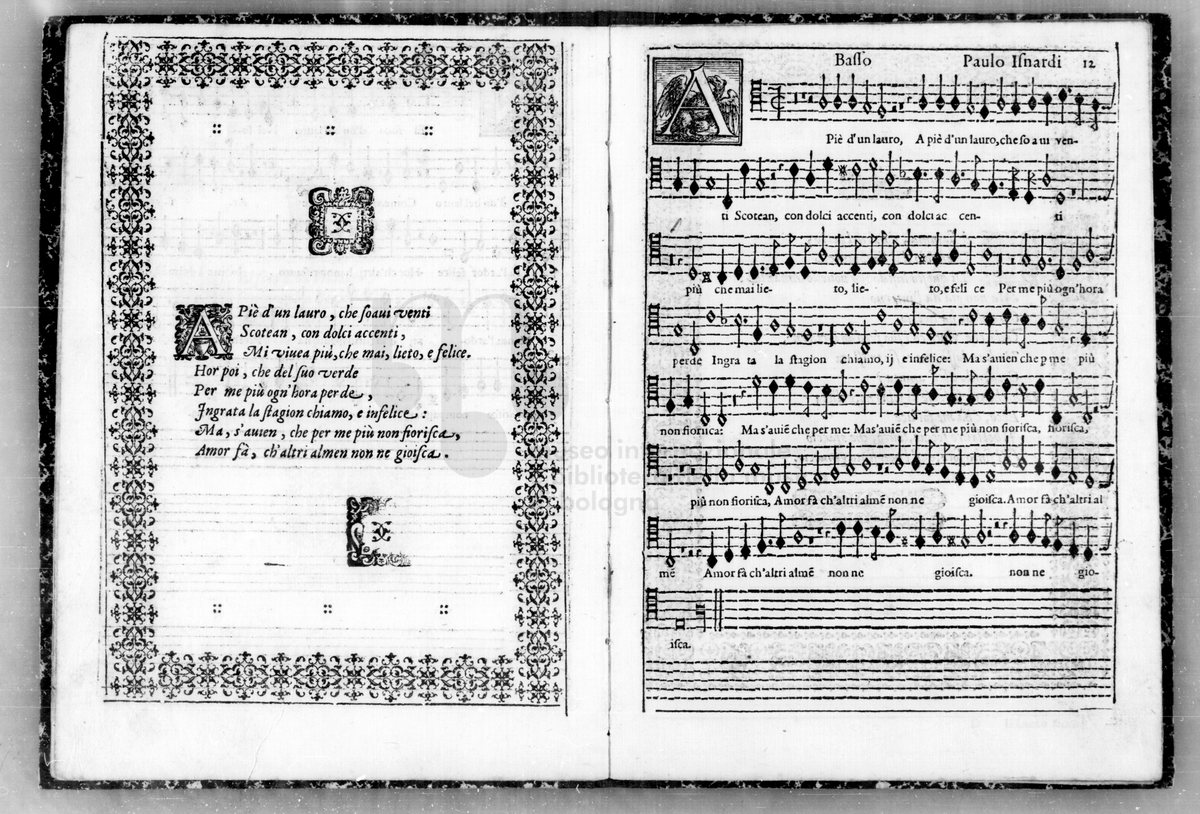 A Piè d'un lauro, che ſoaui venti
Scotean, con dolci accenti,
Mi viuea più, che mai, lieto, e felice.
Hor poi, che del ſuo verde
Per me più ogn'hora perde,
Ingrata la ſtagion chiamo, e infelice:
Ma, s'auien, che per me più non fioriſca,
Amor fà, ch'altri almen non ne gioiſca.
Baſſo Paulo Iſnardi 12
A Piè d'un lauro, A piè d'un lauro, che ſo a ui ven-
ti Scotean, con dolci accenti, con dolci ac cen- ti
più che mai lie- to, lie- to, e feli ce Per me più ogn'hora
perde Ingra ta la ſtagion chiamo, ij e infelice: Ma s'auien che p me più
non fioriſca: Ma s'auiẽ che per me: Mas'auiẽ che per me più non fioriſca, fioriſca,
più non fioriſca, Amor fà ch'altri almẽ non ne gioiſca. Amor fà ch'altri al
mẽ Amor fà ch'altri almẽ non ne gioiſca. non ne gio-
iſca.
bibliote
bologna